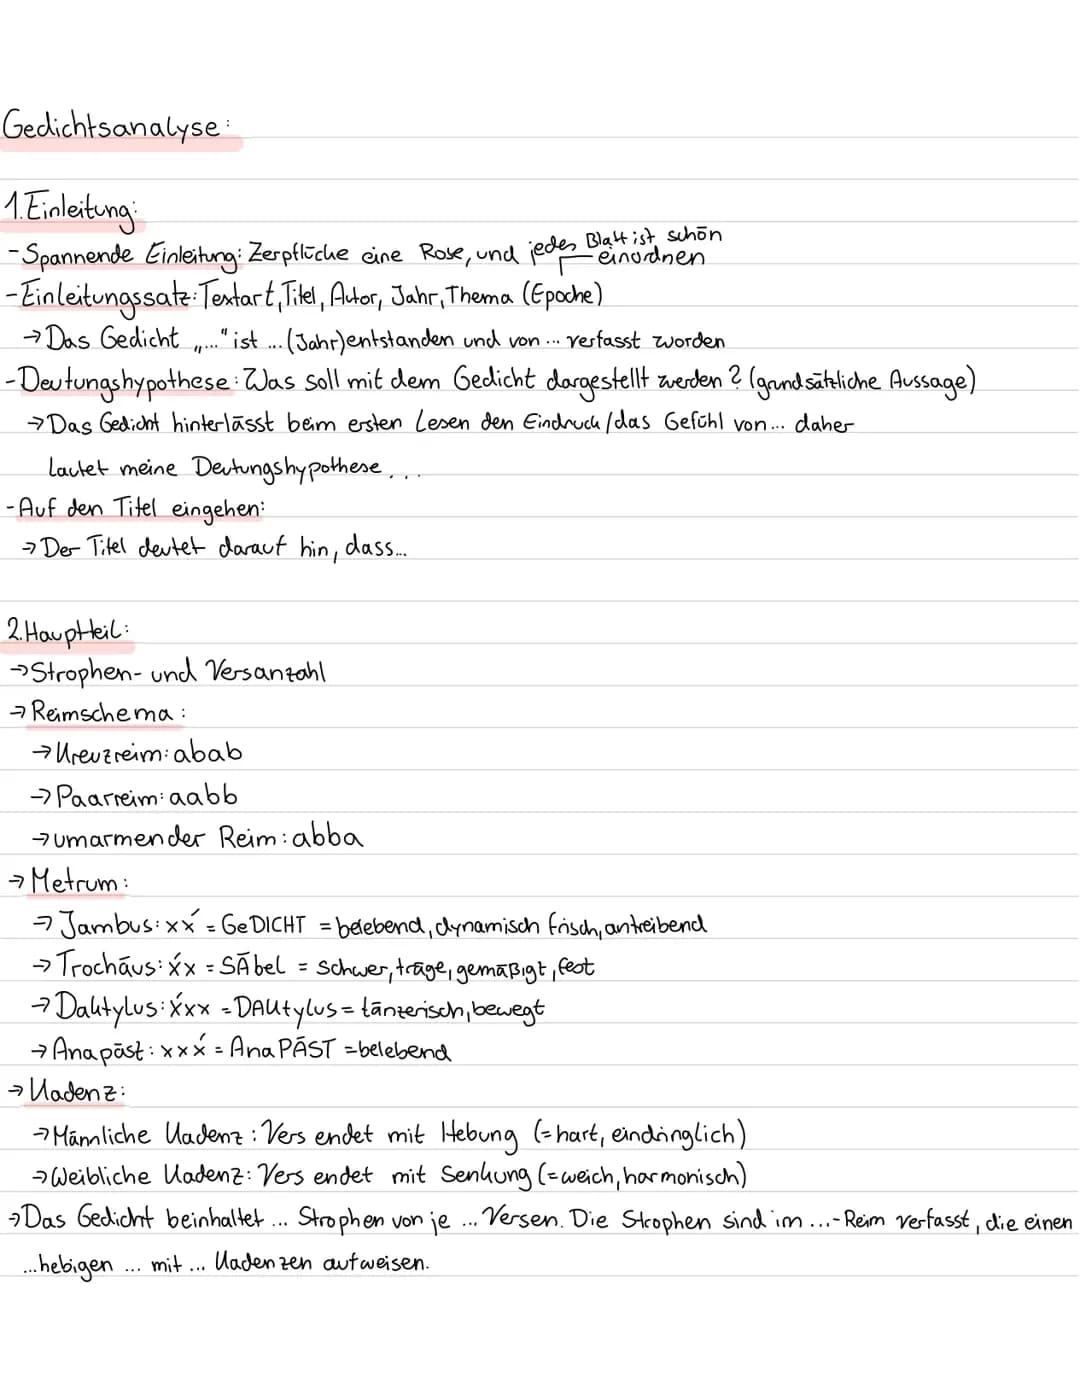 Gedichtsanalyse:
1. Einleitung:
- Spannende Einleitung: Zerpflücke eine Rose, und jedes Blatt ist schön
einordnen
- Einleitungssatz: Textart, Titel, Autor, Jahr, Thema (Epoche)
→ Das Gedicht „..." ist ... (Jahr) entstanden und von ... verfasst worden
- Deutungshypothese: Was soll mit dem Gedicht dargestellt werden? (grundsätzliche Aussage)
→ Das Gedicht hinterlässt beim ersten Lesen den Eindruck/das Gefühl von... daher
lautet meine Deutungshypothese...
- Auf den Titel eingehen:
→ Der Titel deutet darauf hin, dass...
2. Hauptteil:
→ Strophen- und Versanzahl
→ Reimschema:
→ Kreuzreim: abab
→ Paarreim: aabb
→ umarmender Reim: abba
→ Metrum:
→ Jambus: xx́ = GeDICHT = belebend, dynamisch frisch, antreibend
→ Trochäus: x́x = SÄbel = Schwer, träge, gemäßigt, fest
→ Daktylus: x́xx = DAKtylus = tänzerisch, bewegt
→ Anapäst: xxx́ = AnaPÄST = belebend
→ Kadenz:
→ Männliche Kadenz: Vers endet mit Hebung (= hart, eindringlich)
→ Weibliche Kadenz: Vers endet mit Senkung (= weich, harmonisch)
→ Das Gedicht beinhaltet ... Strophen von je ... Versen. Die Strophen sind im ...-Reim verfasst, die einen
...hebigen ... mit ... Kadenzen aufweisen.